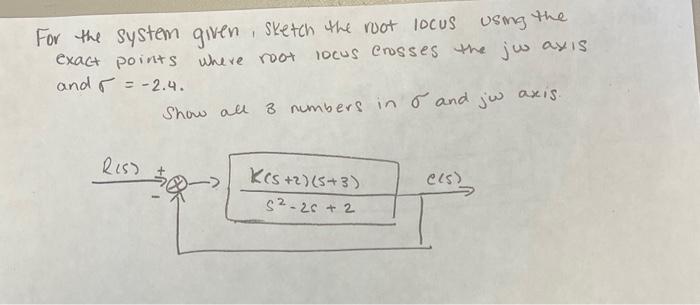 For the system given, sketch the root locus using the
exact points where root locus crosses the jω axis
and σ = -2.4.
Show all 3 numbers in σ and jω axis.
R(s) + K(s+2)(s+3) c(s)
-
s²-2s + 2